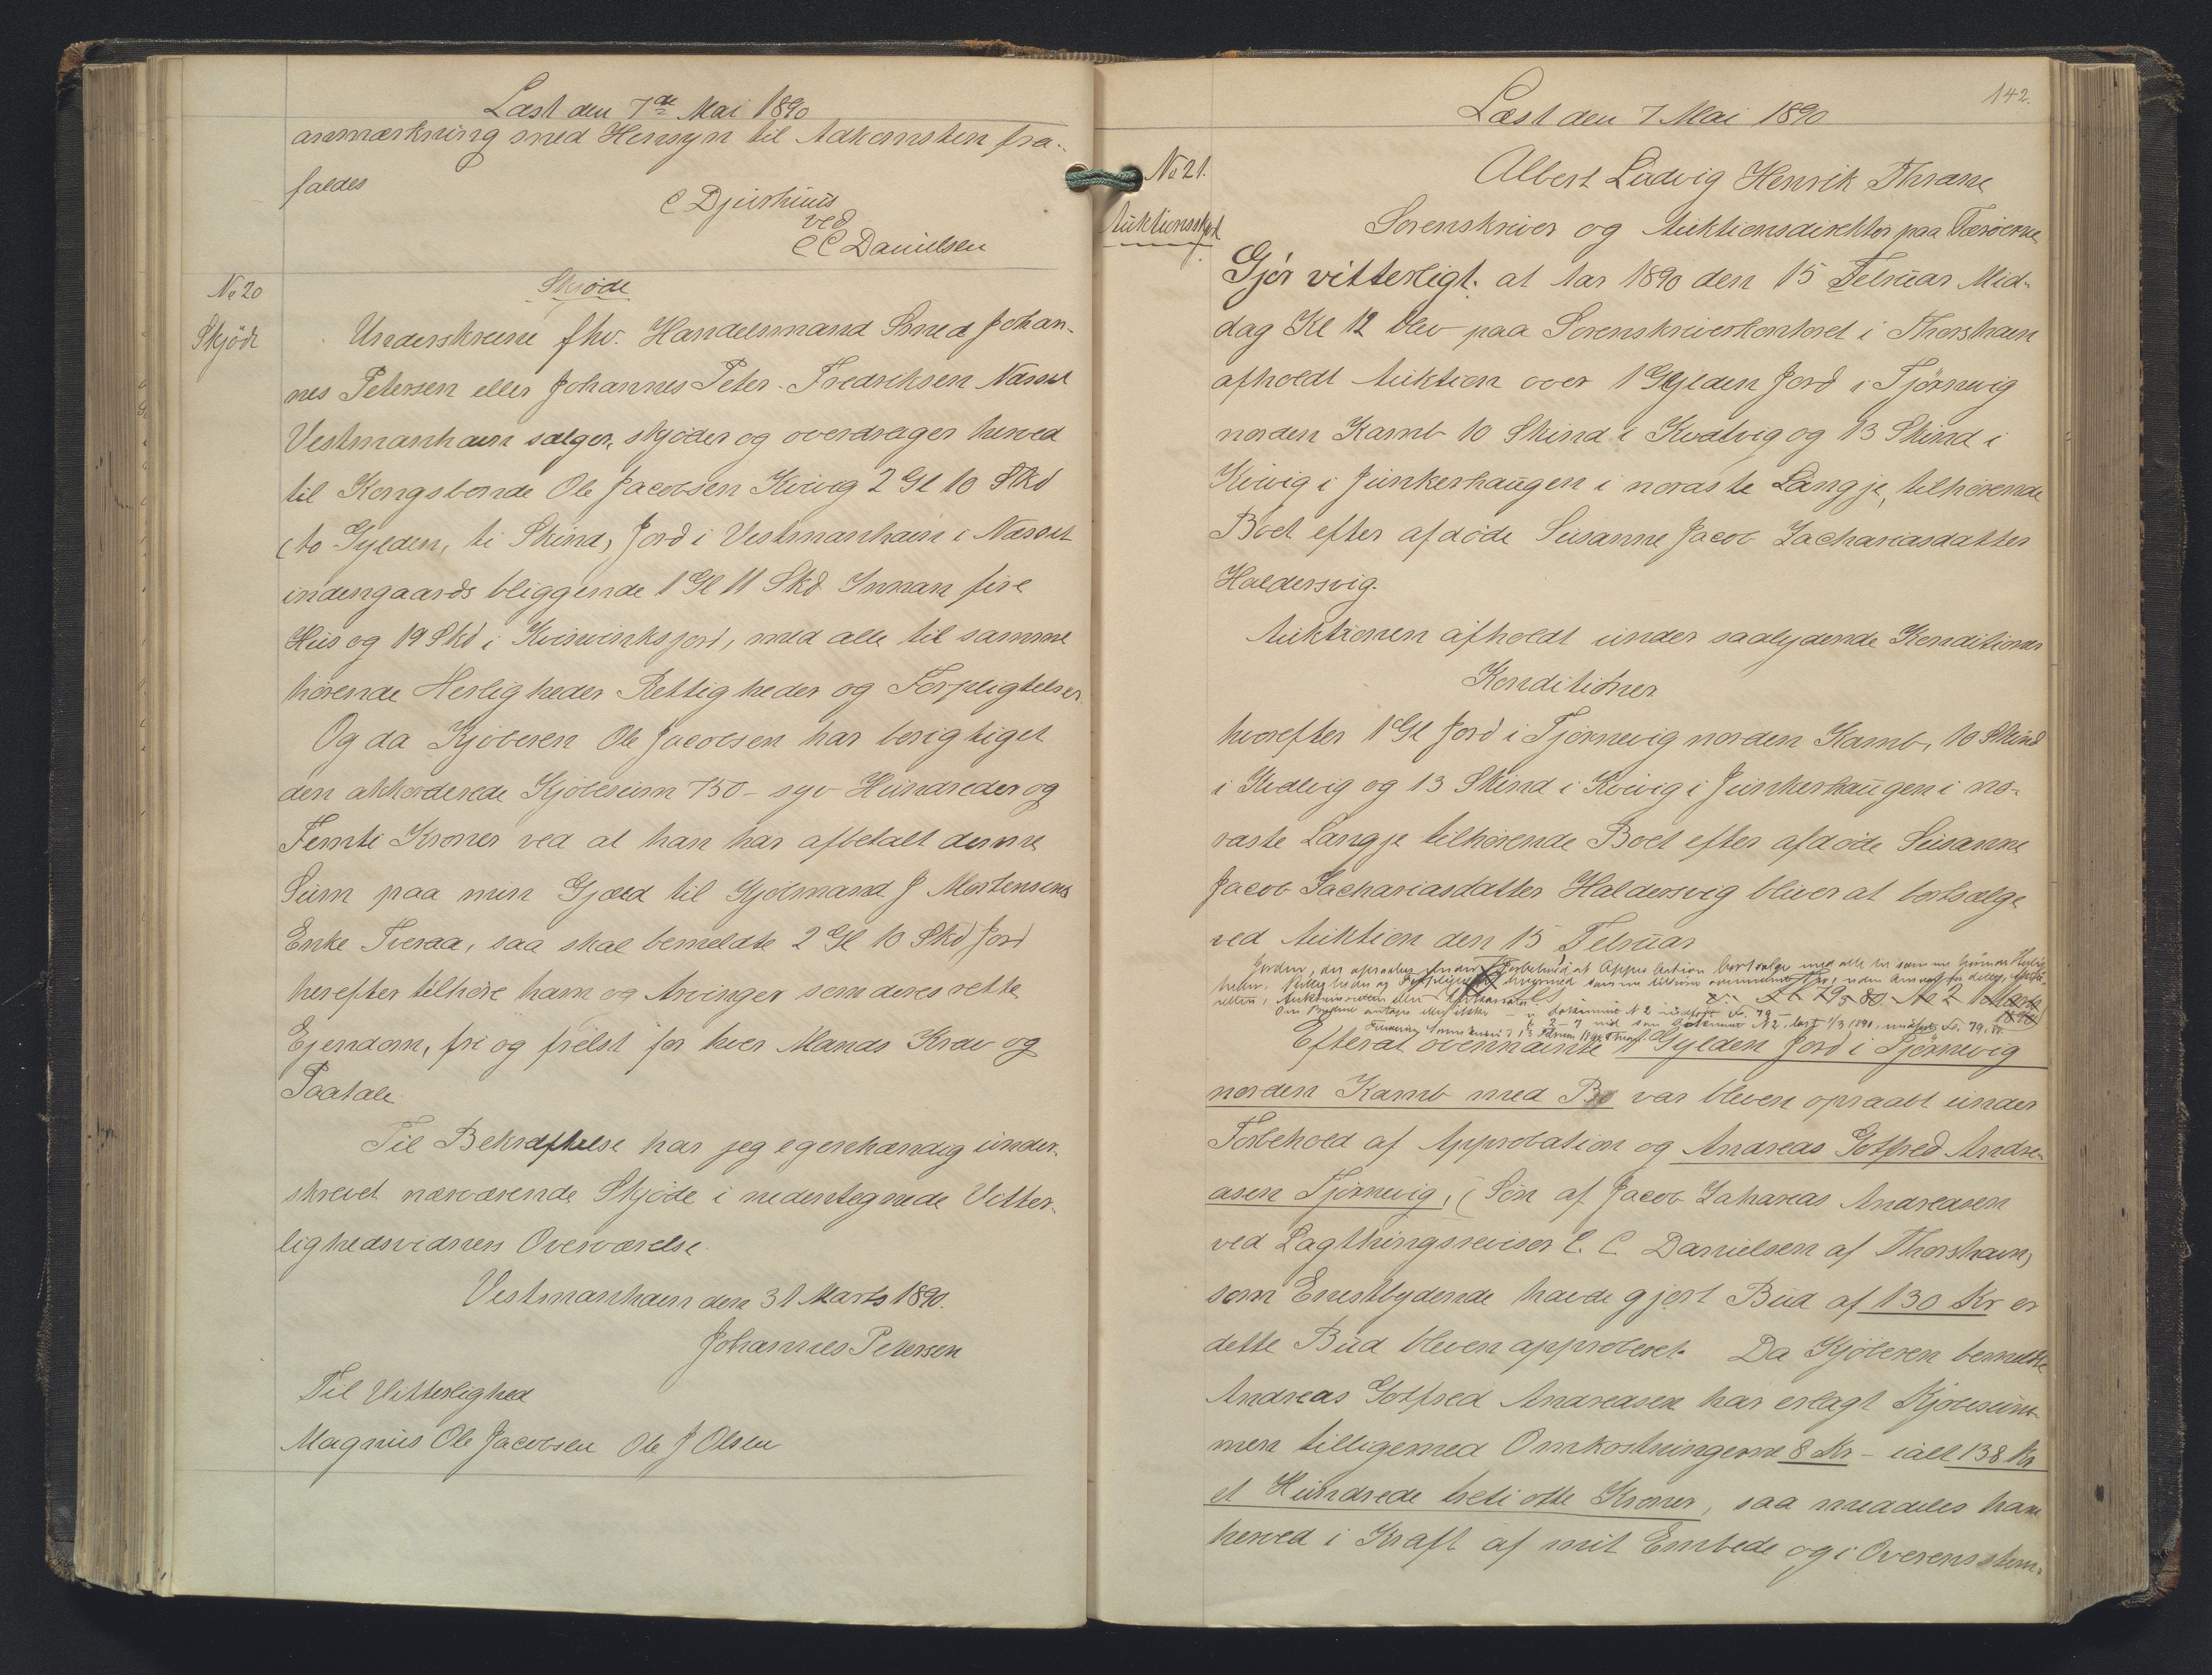 Læst den 7de Mai 1890
anmærkning med Hensyn til Adkomsten fra-
faldes
C Djurhuus
ved
C C Danielsen
No 20
Skjöde
Skjöde
Underskrevne fhv. Handelsmand Smed Johan-
nes Petersen eller Johannes Peter Fredriksen Næsset
Vestmanhavn sælger, skjøder og overdrager herved
til Kongsbonde Ole Jacobsen Kvivig 2 Gl 10 Skd
(to Gylden, ti Skind) Jord i Vestmanhavn i Næsset
indengaards bliggende 1 Gl 11 Skd Innan fire
Hus og 19 Skd i Kvirvinksjord, med alle til samme
hørende Herligheder Rettigheder og Forpligtelser.
Og da Kjøberen Ole Jacobsen har berigtiget
den akkorderede Kjøbesum 750 - syv Hundreder og
Femti Kroner ved at han har afbetalt denne
Sum paa min Gjæld til Kjøbmand J Mortensens
Enke Tveraa, saa skal bemeldte 2 Gl 10 Skd Jord
herefter tilhøre ham og Arvinger som deres rette
Ejendom, fri og frelst for hver Mands Krav og
Paatale.
Til Bekræftelse har jeg egenhændig under-
skrevet nærværende Skjøde i nedentegnede Vitter-
lighedsvidners Overværelse.
Vestmanhavn den 31 Marts 1890.
Johannes Petersen
Til Vitterlighed
Magnus Ole Jacobsen Ole J Olsen
142.
Læst den 7 Mai 1890
No 21.
Auktionsskjøde
Albert Ludvig Henrik Thrane
Sorenskriver og Auktionsdirektør paa Færøerne
Gjör vitterligt: at Aar 1890 den 15 Februar Mid-
dag Kl 12 blev paa Sorenskriverkontoret i Thorshavn
afholdt Auktion over 1 Gylden Jord i Tjörnevig
norden Kamb 10 Skind i Kvalvig og 13 Skind i
Kvivig i Junkerhaugen i noraste Længje, tilhørende
Boet efter afdöde Susanne Jacob Zachariasdatter
Haldersvig.
Auktionen afholdt under saalydende Konditioner
Konditioner
hvorefter 1 Gl Jord i Tjørnevig norden Kamb, 10 Skind
i Kvalvig og 13 Skind i Kvivig i Junkerhaugen i no-
raste Længje tilhørende Boet efter afdøde Susanne
Jacob Zachariasdatter Haldersvig bliver at bortsælge
ved Auktion den 15 Februar
Jorden, der opraabes under Forbehold af Approbation bortsælges med alle til samme hørende Herlig-
heder, Rettigheder og Forpligtelser
Efterat ovennævnte 1 Gylden Jord i Tjørnevig
norden Kamb med Bø var bleven opraabt under
Forbehold af Approbation og Andreas Gotfred Andre-
asen Tjørnevig, (Søn af Jacob Zakarias Andreasen
ved Lagthingsrevisor C. C. Danielsen af Thorshavn)
som Enestbydende havde gjort Bud af 130 Kr er
dette Bud bleven approberet. Da Kjøberen bemeldte
Andreas Gotfred Andreasen har erlagt Kjøbesum-
men tilligemed Omkostningerne 8 Kr - ialt 138 Kr
et Hundrede treti otte Kroner, saa meddeles ham
herved i Kraft af mit Embede og i Overensstem-